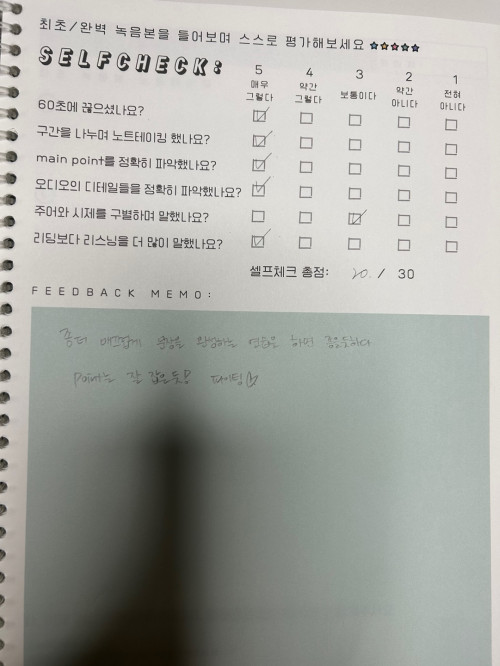 최초/완벽 녹음본을 들어보며 스스로 평가해보세요 ☆☆☆☆☆
SELFCHECK:
5 4 3 2 1
매우 그렇다 약간 그렇다 보통이다 약간 아니다 전혀 아니다
60초에 끊으셨나요?
구간을 나누며 노트테이킹 했나요?
main point를 정확히 파악했나요?
오디오의 디테일들을 정확히 파악했나요?
주어와 시제를 구별하며 말했나요?
리딩보다 리스닝을 더 많이 말했나요?
셀프체크 총점: 20. / 30
FEEDBACK MEMO:
좀더 매끄럽게 문장을 완성하는 연습을 하면 좋을듯하다
Point는 잘 잡은듯! 파이팅